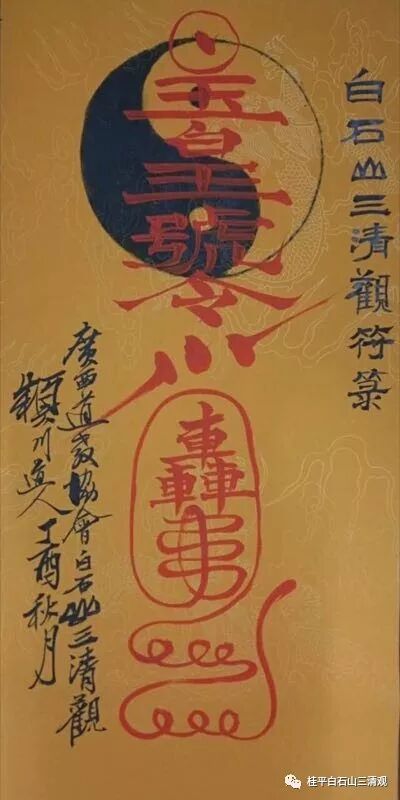 白石山三清觀符箓
玉皇號令
轟
廣西道教協會白石山三清觀
川道人丁酉秋月
桂平白石山三清观